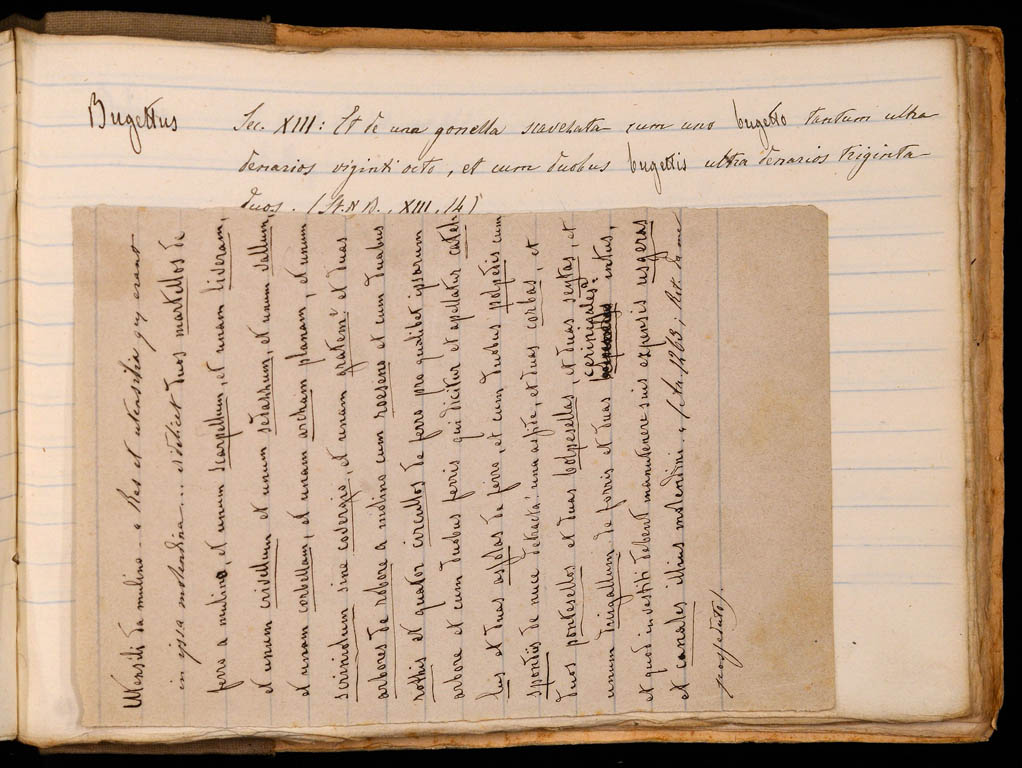 Bugettus Sec. XIII: Et de una gonella scavezata cum uno bugetto tantum ultra
denarios viginti octo, et cum duobus bugettis ultra denarios triginta
duos. (St. N. D., XIII, 14)
Utensili da mulino - « Res et utensilia que erant
in ipsa molendina ... videlicet duos martellos de
ferro a mulino, et unum scarpellum, et unam liveram,
et unum crivellum et unum sedazzum, et unum vallum
et unam corbellam, et unam archam planam, et unum
scriniolum sine coverzio, et unam gratem? et duas
arbores de robore a molino cum roesene et cum duabus
rothis et quator circullos de ferro pro qualibet ipsarum
arbore et cum duobus ferris qui dicitur et apellatur cateh
lus et duas asolas de ferro, et cum duobus polperis cum
spontiis de nuce detracta una aspite, et duas corbas, et
duos pontesellos et duas bolpesellas, et duas sextas, et
unum duigallum de forris et duas cerinigales? intus,
et quod investiti debent manutenere suis expensis usgeras
et canales illius molendini. (ta. 1263, Rist. da me
posseduto).